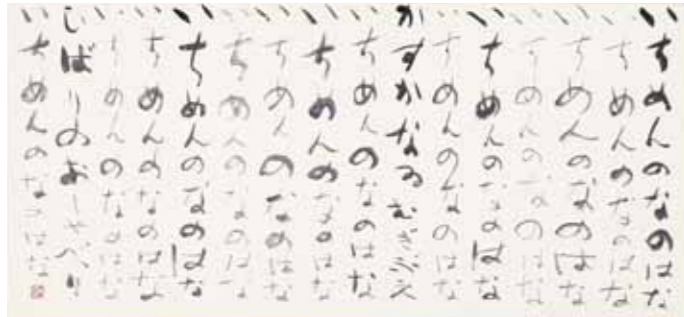 いちめんのなのはな
いちめんのなのはな
いちめんのなのはな
いちめんのなのはな
いちめんのなのはな
いちめんのなのはな
かすかなるむぎぶえ
いちめんのなのはな
いちめんのなのはな
いちめんのなのはな
いちめんのなのはな
いちめんのなのはな
いちめんのなのはな
いちめんのなのはな
ひばりのおしやべり
いちめんのなのはな